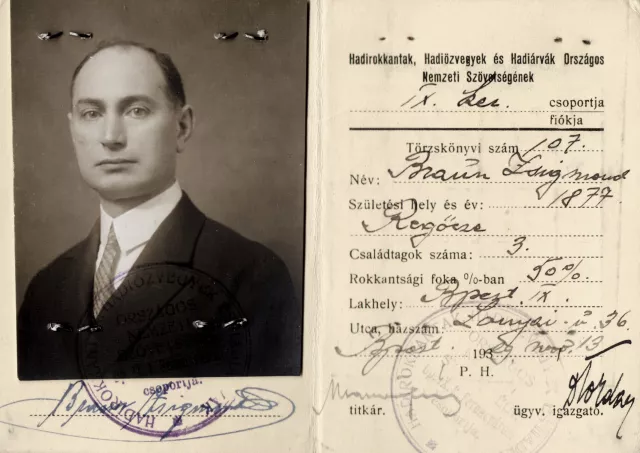 Braun Zsigmond
csoportja.
Hadirokkantak, Hadiözvegyek és Hadiárvák Országos
Nemzeti Szövetségének
IX. ker. csoportja
fiókja
Törzskönyvi szám 107.
Név: Braun Zsigmond
Születési hely és év: 1877
Regőcze
Családtagok száma: 3.
Rokkantsági foka %-ban 50%.
Lakhely: Bpest. IX.
Utca, házszám: Lónyai-u. 36.
Bpest. 193 nov. 13
P. H.
titkár. ügyv. igazgató.